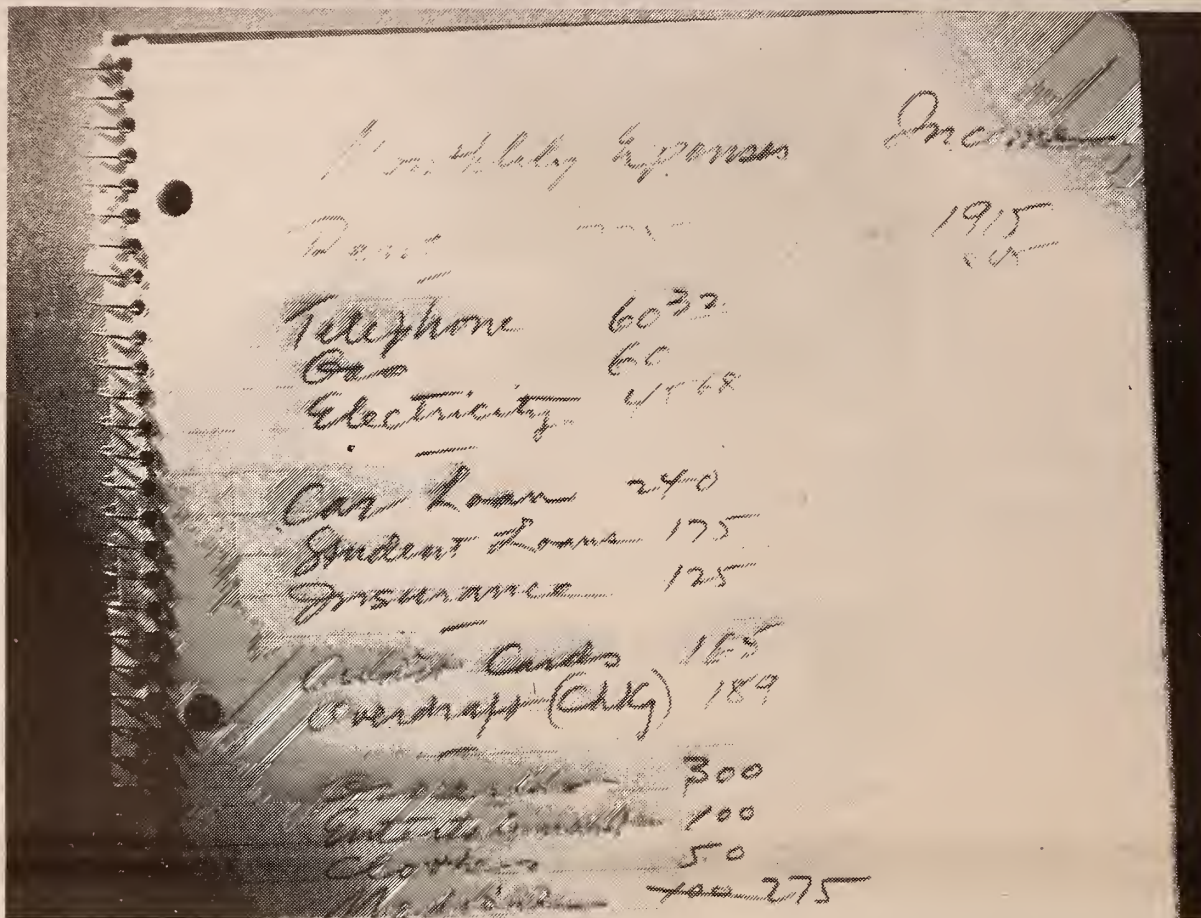 Monthly Expenses Income
Rent 1915
Telephone 60 32
Gas 60
Electricity 45 68
Car Loan 240
Student Loans 175
Insurance 125
Credit Cards 165
Overdraft (Chkg) 189
300
Entertainment 100
Clothes 50
275